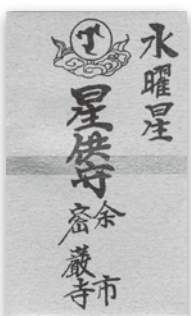 水曜星
星供守
余市
密厳寺